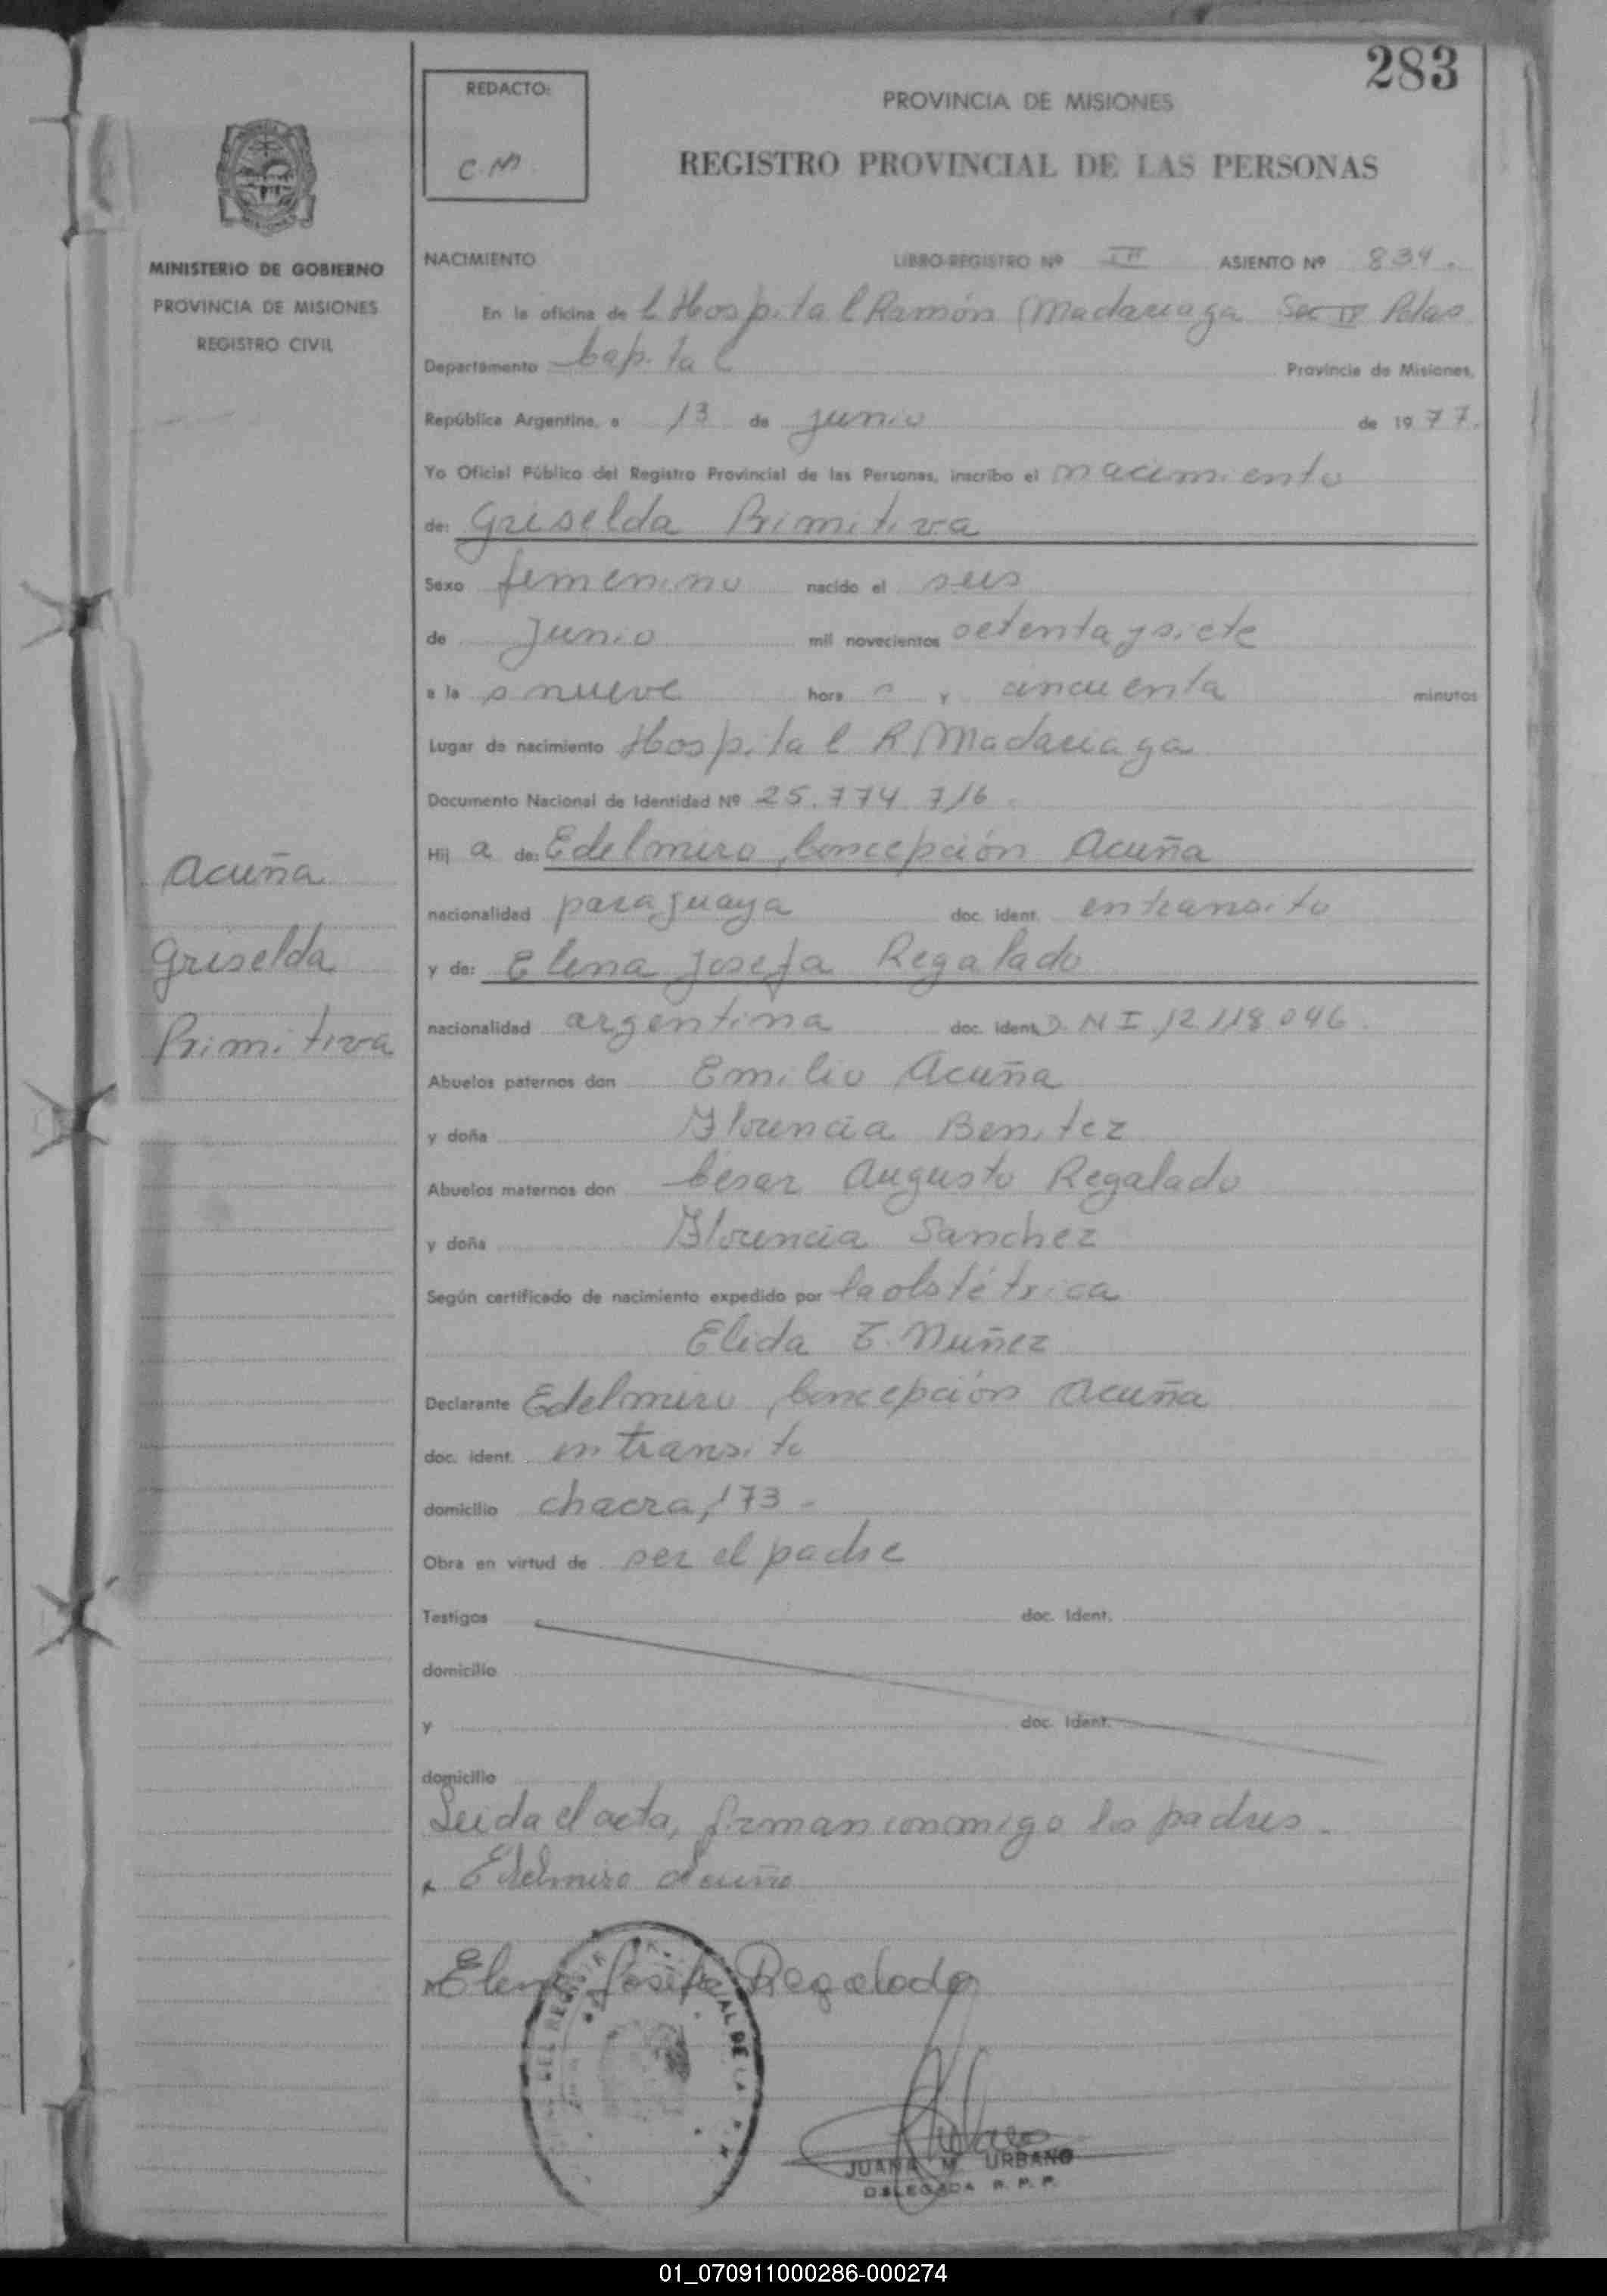 283
REDACTO:
C.M
PROVINCIA DE MISIONES
REGISTRO PROVINCIAL DE LAS PERSONAS
MINISTERIO DE GOBIERNO
PROVINCIA DE MISIONES
REGISTRO CIVIL
NACIMIENTO LIBRO-REGISTRO Nº III ASIENTO Nº 834.
En la oficina de l Hospital Ramón Madariaga Sec IV Pdas
Departamento Capital Provincia de Misiones,
República Argentina, a 13 de junio de 1977.
Yo Oficial Público del Registro Provincial de las Personas, inscribo el nacimiento
de: Griselda Primitiva
Sexo femenino nacido el seis
de Junio mil novecientos setenta y siete
a la s nueve hora s y cincuenta minutos
Lugar de nacimiento Hospital R Madariaga
Documento Nacional de Identidad Nº 25.774.716
Hij a de: Edelmiro Concepción Acuña
nacionalidad paraguaya doc. ident. en transito
y de: Elena Josefa Regalado
nacionalidad argentina doc. ident. D.N.I 12.118.046.
Abuelos paternos don Emilio Acuña
y doña Florencia Benitez
Abuelos maternos don Cesar Augusto Regalado
y doña Florencia Sanchez
Según certificado de nacimiento expedido por la obstétrica
Elida T. Nuñez
Declarante Edelmiro Concepción Acuña
doc. ident. en transito
domicilio chacra, 173 -
Obra en virtud de ser el padre
Testigos doc. Ident.
domicilio
y doc. Ident.
domicilio
Leida el acta, firman conmigo los padres.
Edelmiro Acuña
Elena Josefa Regalado
JUANA M. URBANO
DELEGADA R. P. P.
Acuña
Griselda
Primitiva
01_070911000286-000274